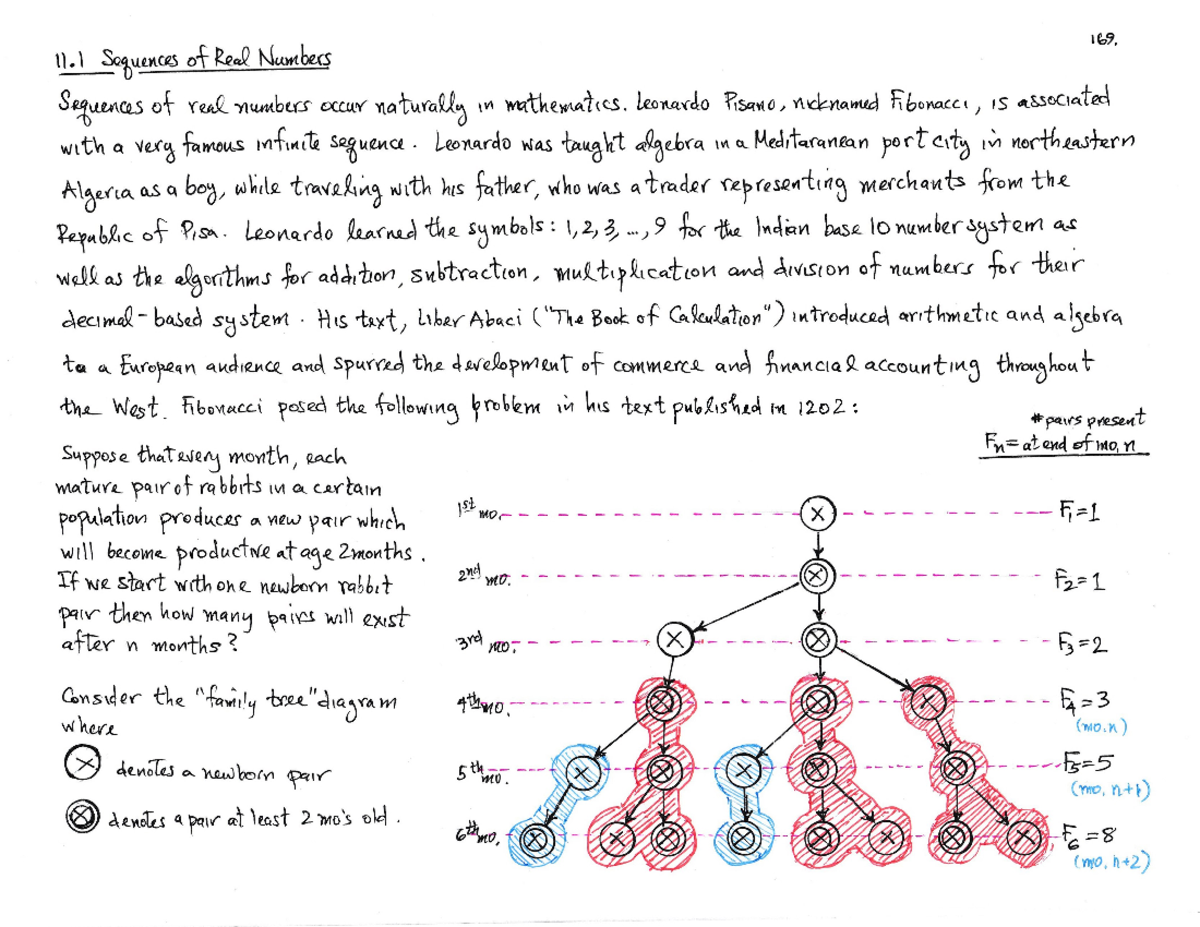 169.
11.1 Sequences of Real Numbers
Sequences of real numbers occur naturally in mathematics. Leonardo Pisano, nicknamed Fibonacci, is associated
with a very famous infinite sequence. Leonardo was taught algebra in a Meditaranean port city in northeastern
Algeria as a boy, while traveling with his father, who was a trader representing merchants from the
Republic of Pisa. Leonardo learned the symbols: 1, 2, 3, ..., 9 for the Indian base 10 number system as
well as the algorithms for addition, subtraction, multiplication and division of numbers for their
decimal-based system. His text, Liber Abaci ("The Book of Calculation") introduced arithmetic and algebra
to a European audience and spurred the development of commerce and financial accounting throughout
the West. Fibonacci posed the following problem in his text published in 1202:
# pairs present
Fn = at end of mo. n
Suppose that every month, each
mature pair of rabbits in a certain
population produces a new pair which
will become productive at age 2 months.
If we start with one newborn rabbit
pair then how many pairs will exist
after n months?
Consider the "family tree" diagram
where
denotes a newborn pair
denotes a pair at least 2 mo's old.
1st mo. F1=1
2nd mo. F2=1
3rd mo. F3=2
4th mo. F4=3
(mo. n)
5th mo. F5=5
(mo. n+1)
6th mo. F6=8
(mo. n+2)